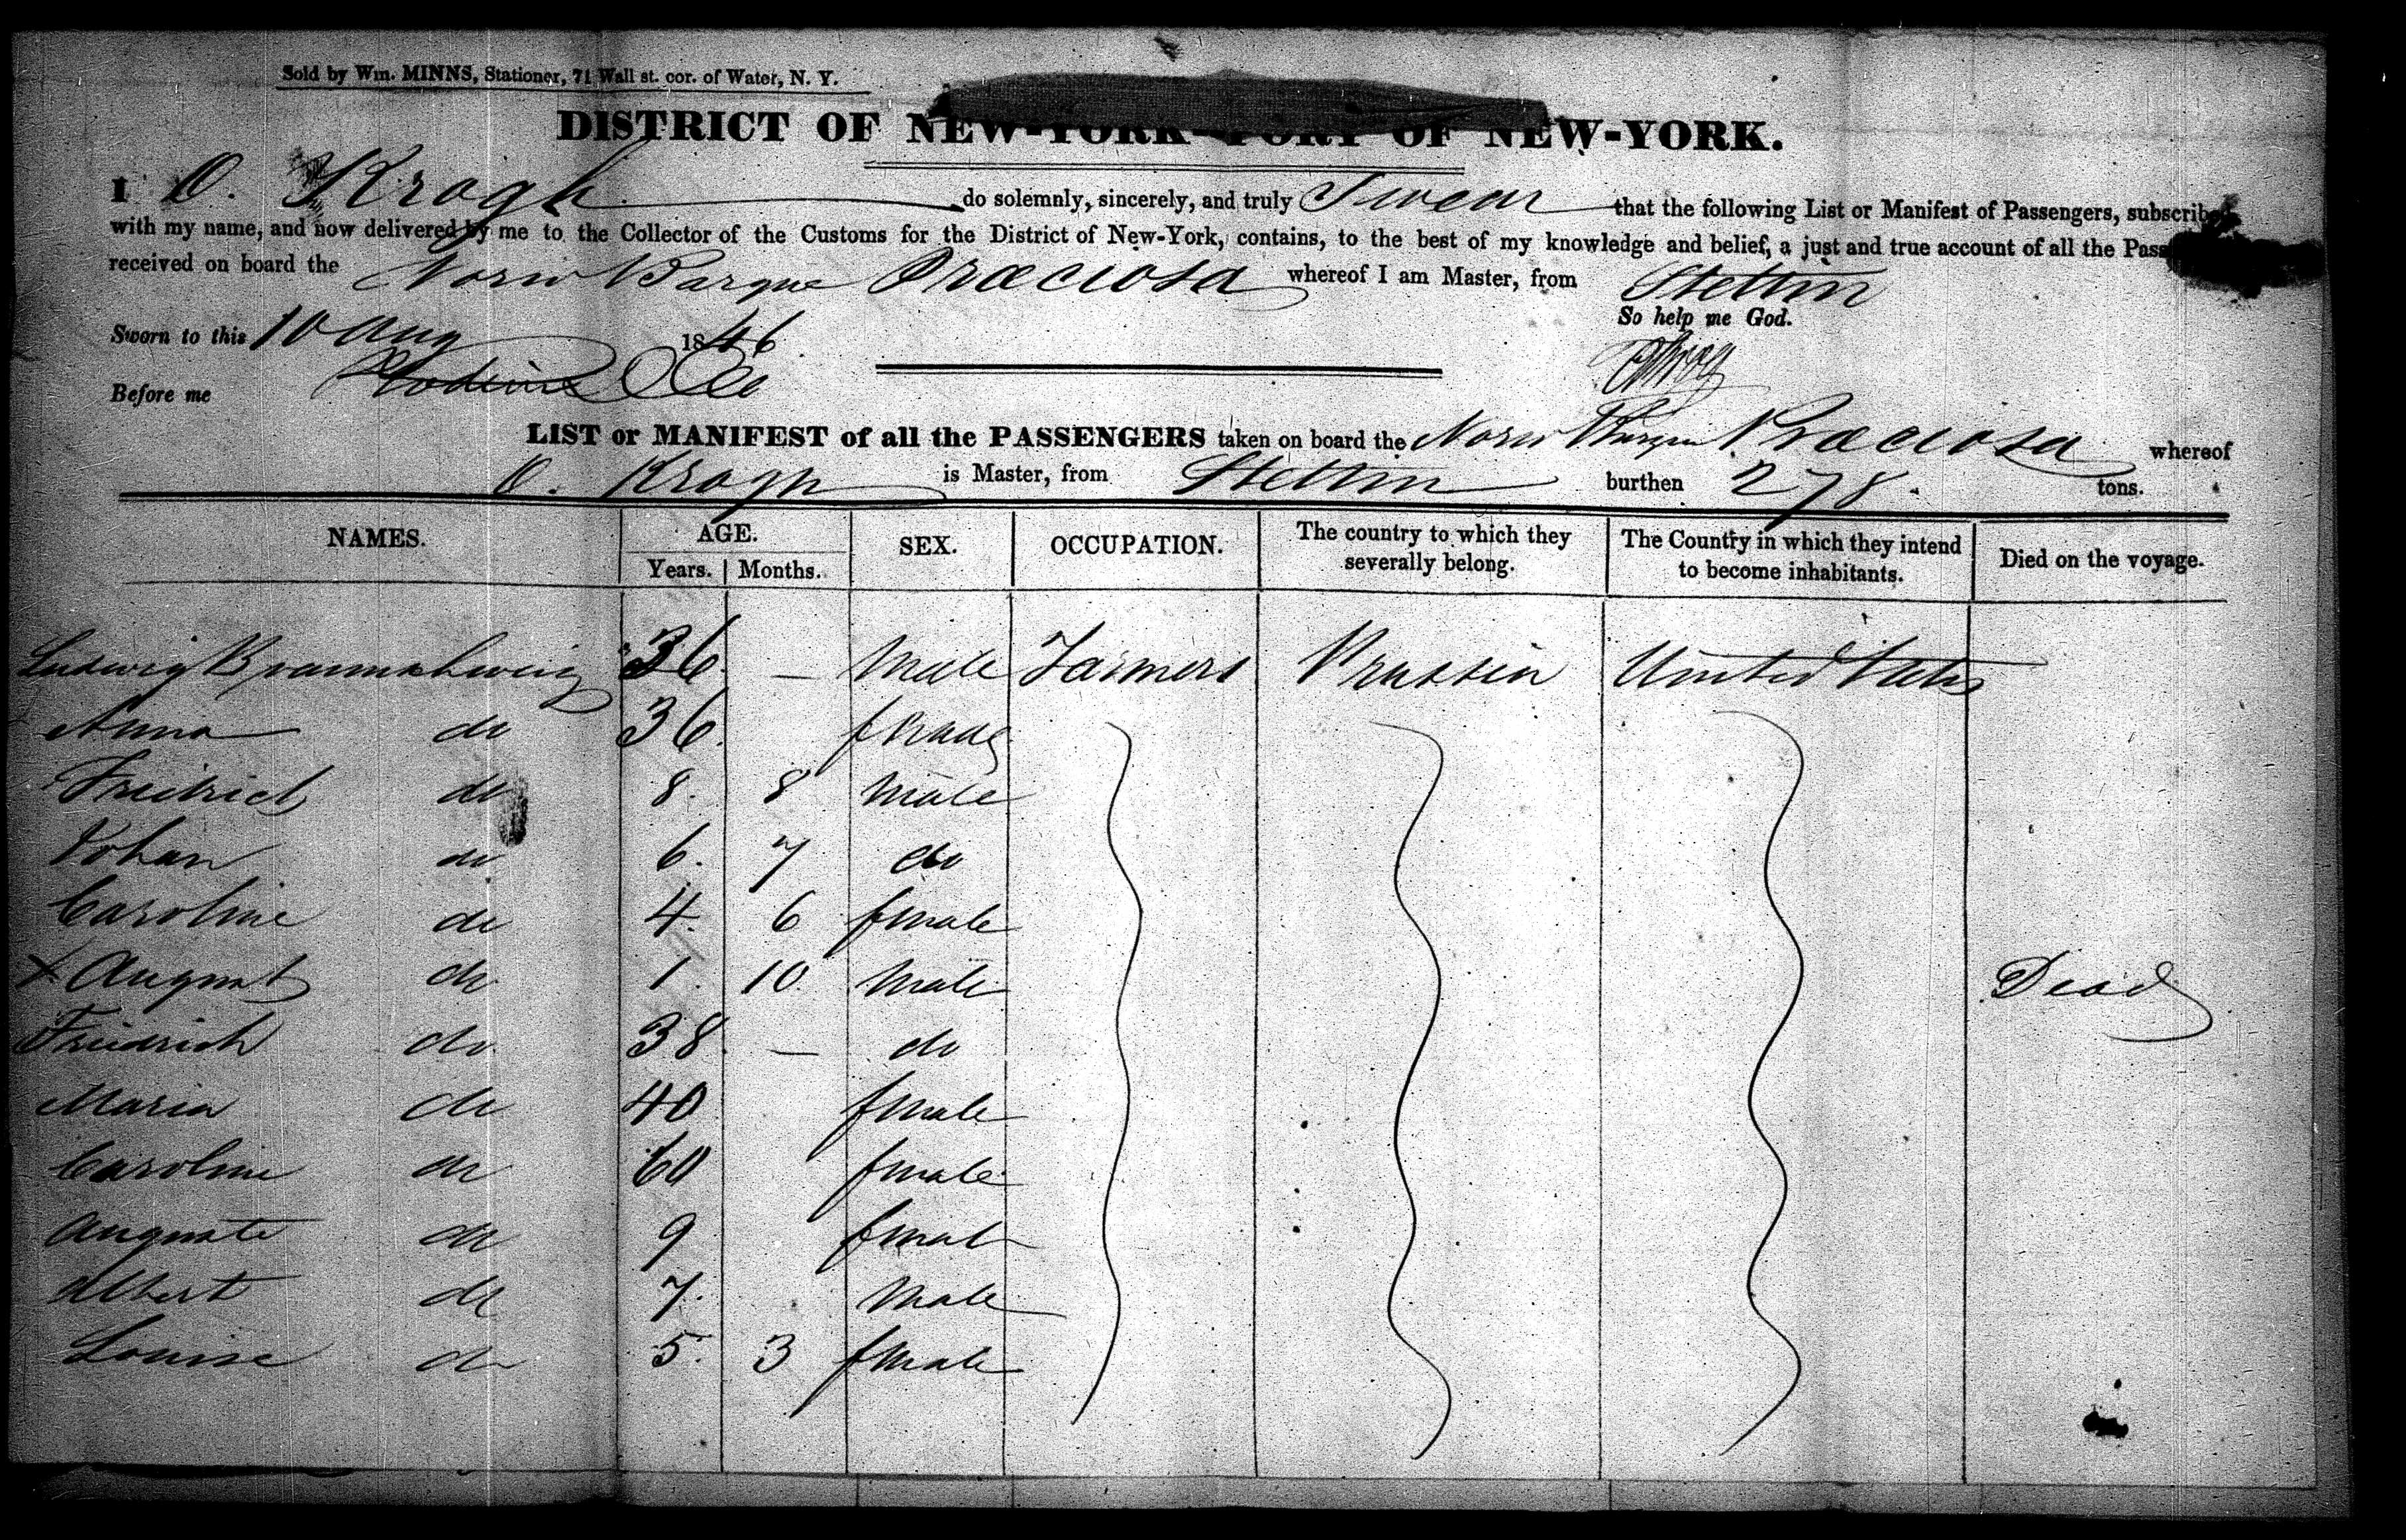 Sold by Wm. MINNS, Stationer, 71 Wall st. cor. of Water, N. Y.
DISTRICT OF NEW-YORK—PORT OF NEW-YORK.
I O. Krogh do solemnly, sincerely, and truly Swear that the following List or Manifest of Passengers, subscribe
with my name, and now delivered by me to the Collector of the Customs for the District of New-York, contains, to the best of my knowledge and belief, a just and true account of all the Pass
received on board the Norw Barque Præciosa whereof I am Master, from Stettin
So help me God.
Sworn to this 10 Aug 1846
Before me
LIST or MANIFEST of all the PASSENGERS taken on board the Norw Barque Præciosa whereof
O. Krogh is Master, from Stettin burthen 278 tons.
NAMES. AGE. Years. Months. SEX. OCCUPATION. The country to which they severally belong. The Country in which they intend to become inhabitants. Died on the voyage.
Ludwig Braunschweig 36. — Male Farmers Prussia United States
Anna do 36. female
Freidrich do 8. 8 Male
Johan do 6. 7 do
Caroline do 4. 6 fmale
X August do 1. 10 Male Dead
Friedrich do. 38 — do
Maria do 40 fmale
Caroline do 60 fmale
Auguste do 9 fmal
Albert do 7. Male
Louise do 5. 3 fmale